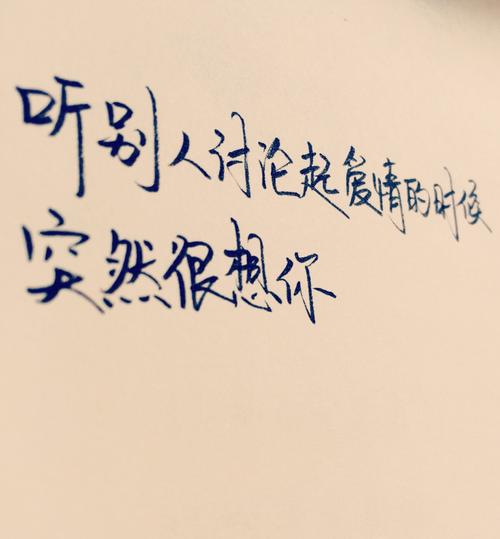 听别人讨论起爱情的时候
突然很想你